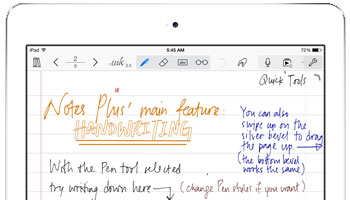 iPad
5:45 AM
72%
2
6
Quick Tools
Notes Plus' main feature:
HANDWRITING
You can also
swipe up on the
silver bevel to drag
the page up.
(the bottom bevel
works the same)
With the Pen tool selected
try writing down here
(change Pen styles if you want)